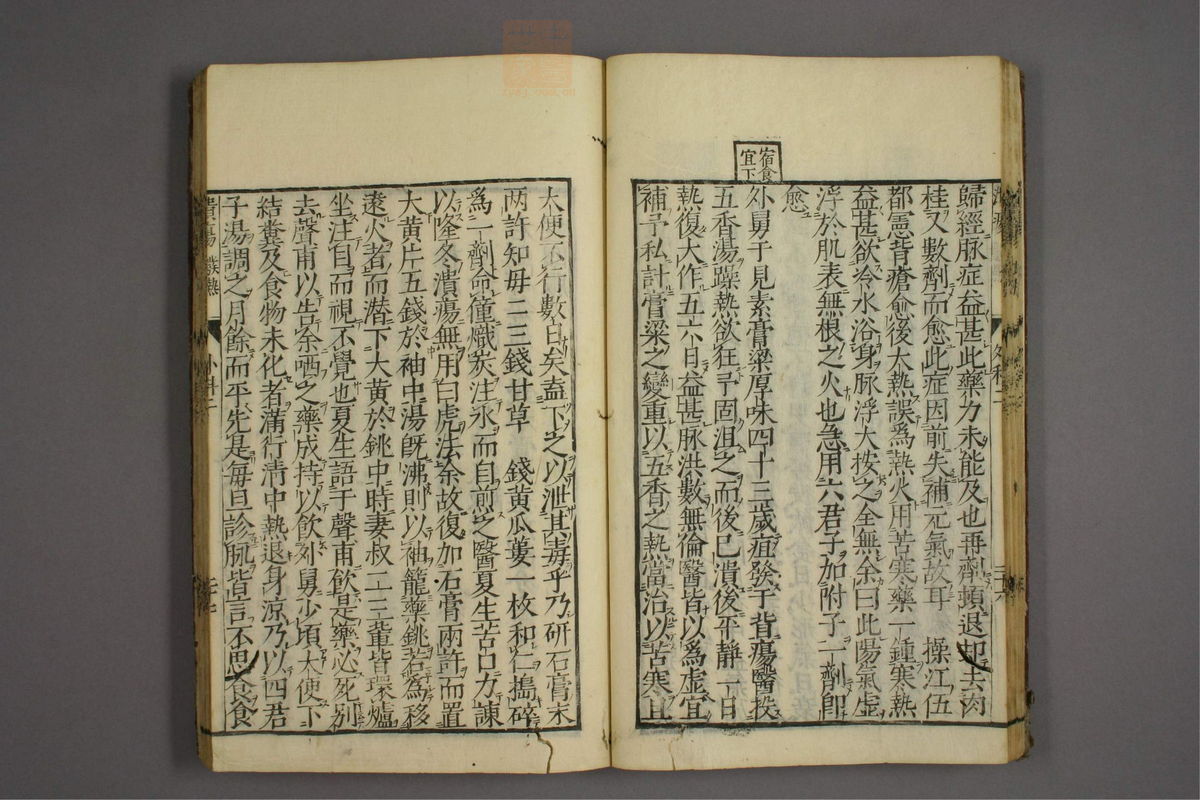 宿食
宜下
歸經脉症益甚此藥力未能及也再劑頓退却去肉
桂又數劑而愈此症因前失補元氣故耳　操江伍
都憲背瘡愈後大熱誤爲熱火用苦寒藥一鍾寒熱
益甚欲冷水浴身脉浮大按之全無余曰此陽氣虛
浮於肌表無根之火也急用六君子加附子一劑卽
愈
外舅于見素膏粱厚味四十三歲疽發于背瘍醫投
五香湯躁熱欲狂予固沮之而後已潰後平靜一日
熱復大作五六日益甚脉洪數無倫醫皆以爲虛宜
補予私計膏粱之變重以五香之熱當治以苦寒且
大便不行數日矣盍下之以泄其毒乎乃研石膏末
兩許知毋二三錢甘草　錢黃瓜蔞一枚和仁搗碎
爲一劑命僮熾炭注水而自煎之醫夏生苦口力諫
以隆冬潰瘍無用白虎法余故復加石膏兩許而置
大黃片五錢於袖中湯旣沸則以袖籠藥銚若爲移
遠火者而潛下大黃於銚中時妻叔二三輩皆環爐
坐注目而視不覺也夏生語于聲甫飲是藥必死別
去聲甫以告余哂之藥成持以飲外舅少頃大便下
結糞及食物未化者滿行清中熱退身涼乃以四君
子湯調之月餘而平先是每旦診脉皆言不思食食
潰瘍　發熱
外科二